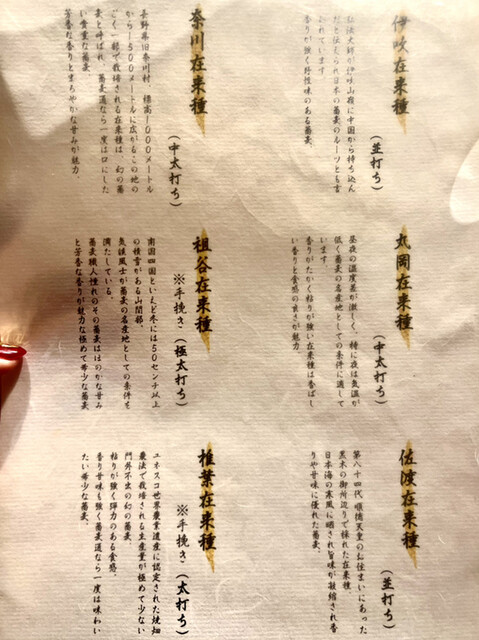 伊吹在来種
(並打ち)
弘法大師が伊吹山嶺に中国から持ち込ん
だと伝えられ日本の蕎麦のルーツとも言
われています。
香りが強く野性味のある蕎麦。
奈川在来種
(中太打ち)
長野県旧奈川村、標高1000メートル
から1500メートルに広がるこの地の
ごく一部で栽培される在来種は、幻の蕎
麦と呼ばれ、蕎麦通なら一度は口にした
い貴重な蕎麦。
芳香な香りとまろやかな甘みが魅力。
丸岡在来種
(中太打ち)
昼夜の温度差が激しく、特に夜は気温が
低く蕎麦の名産地としての条件に適して
います。
香りがたかく粘りが強い在来種は香ばし
い香りと食感の良さが魅力。
祖谷在来種
※手挽き(極太打ち)
南国四国といえど冬には50センチ以上
の積雪がある山間部。
気候風土が蕎麦の名産地としての条件を
満たしている。
蕎麦職人憧れのその蕎麦はほのかな甘み
と芳香な香りが魅力な極めて希少な蕎麦。
佐渡在来種
(並打ち)
第八十四代 順徳天皇のお住まいにあった
黒木の御所辺りで採れた在来種
日本海の寒風に晒され旨味が凝縮され香
りや甘味に優れた蕎麦。
椎葉在来種
※手挽き(太打ち)
ユネスコ世界農業遺産に認定された焼畑
農法で栽培される生産量が極めて少ない
門外不出の幻の蕎麦。
粘りが強く弾力のある食感。
香り甘味も強く蕎麦通なら一度は味わい
たい希少な蕎麦。